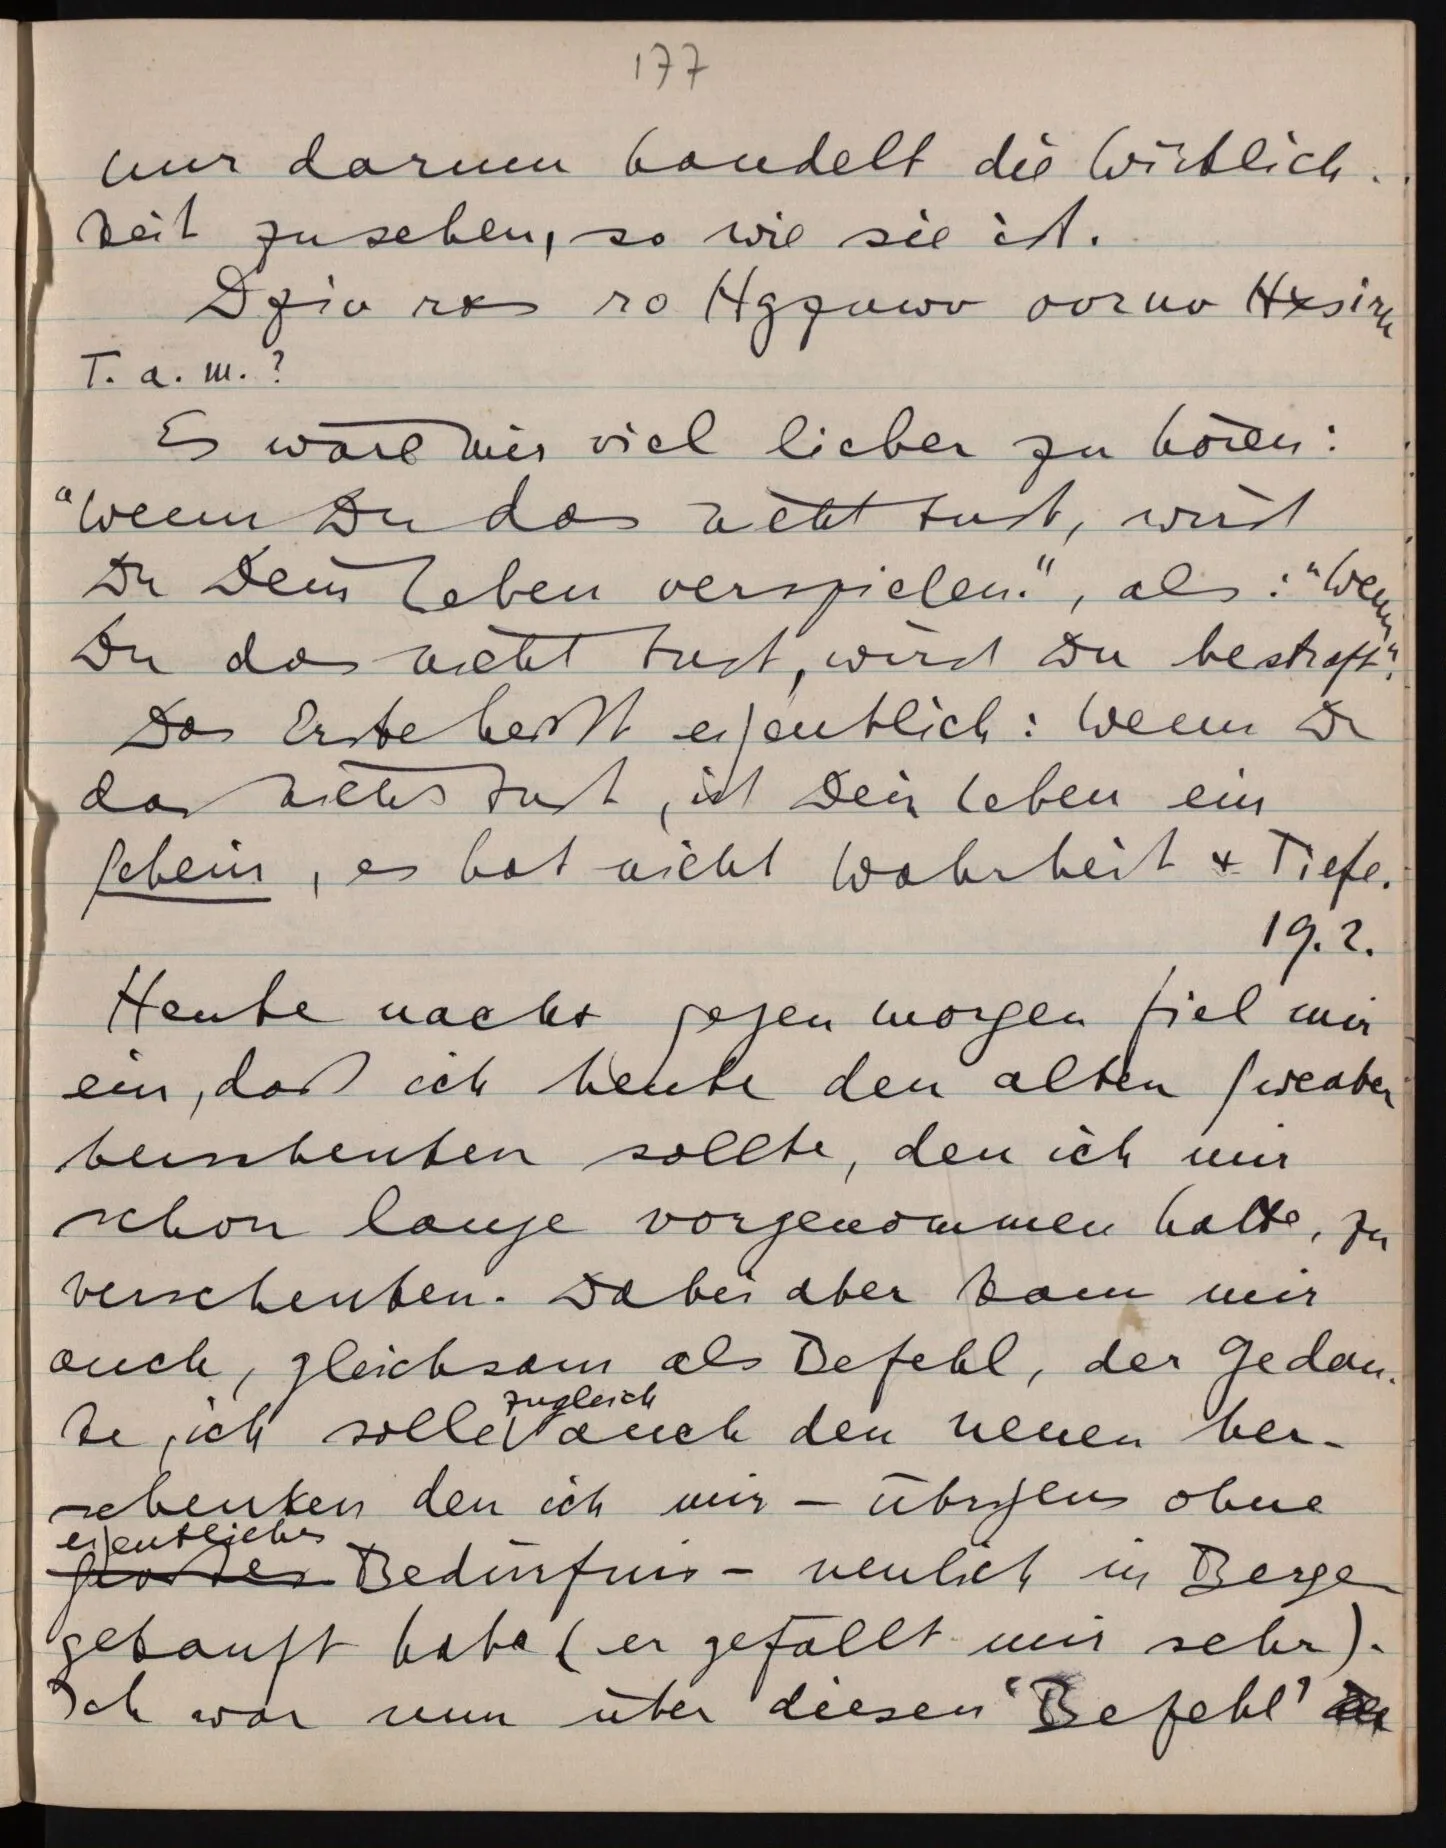 177
nur darum handelt die Wirklich-
keit zu sehen, so wie sie ist.
Dziv rxs ro Hgzuwv ooruv Hxsirh
T. a. m.?
Es wäre mir viel lieber zu hören:
"Wenn Du das nicht tust, wirst
Du Dein Leben verspielen.", als: "Wenn
Du das nicht tust, wirst Du bestraft".
Das Erste heißt eigentlich: Wenn Du
das nicht tust, ist Dein Leben ein
Schein, es hat nicht Wahrheit & Tiefe.
19.2.
Heute nachts gegen morgen fiel mir
ein, daß ich heute den alten Sweater
verschenken sollte, den ich mir
schon lange vorgenommen hatte, zu
verschenken. Dabei aber kam mir
auch, gleichsam als Befehl, der Gedan-
ke, ich solle zugleich auch den neuen ver-
schenken den ich mir – übrigens ohne
eigentliches Bedürfnis – neulich in Bergen
gekauft habe (er gefällt mir sehr).
Ich war nun über diesen 'Befehl'